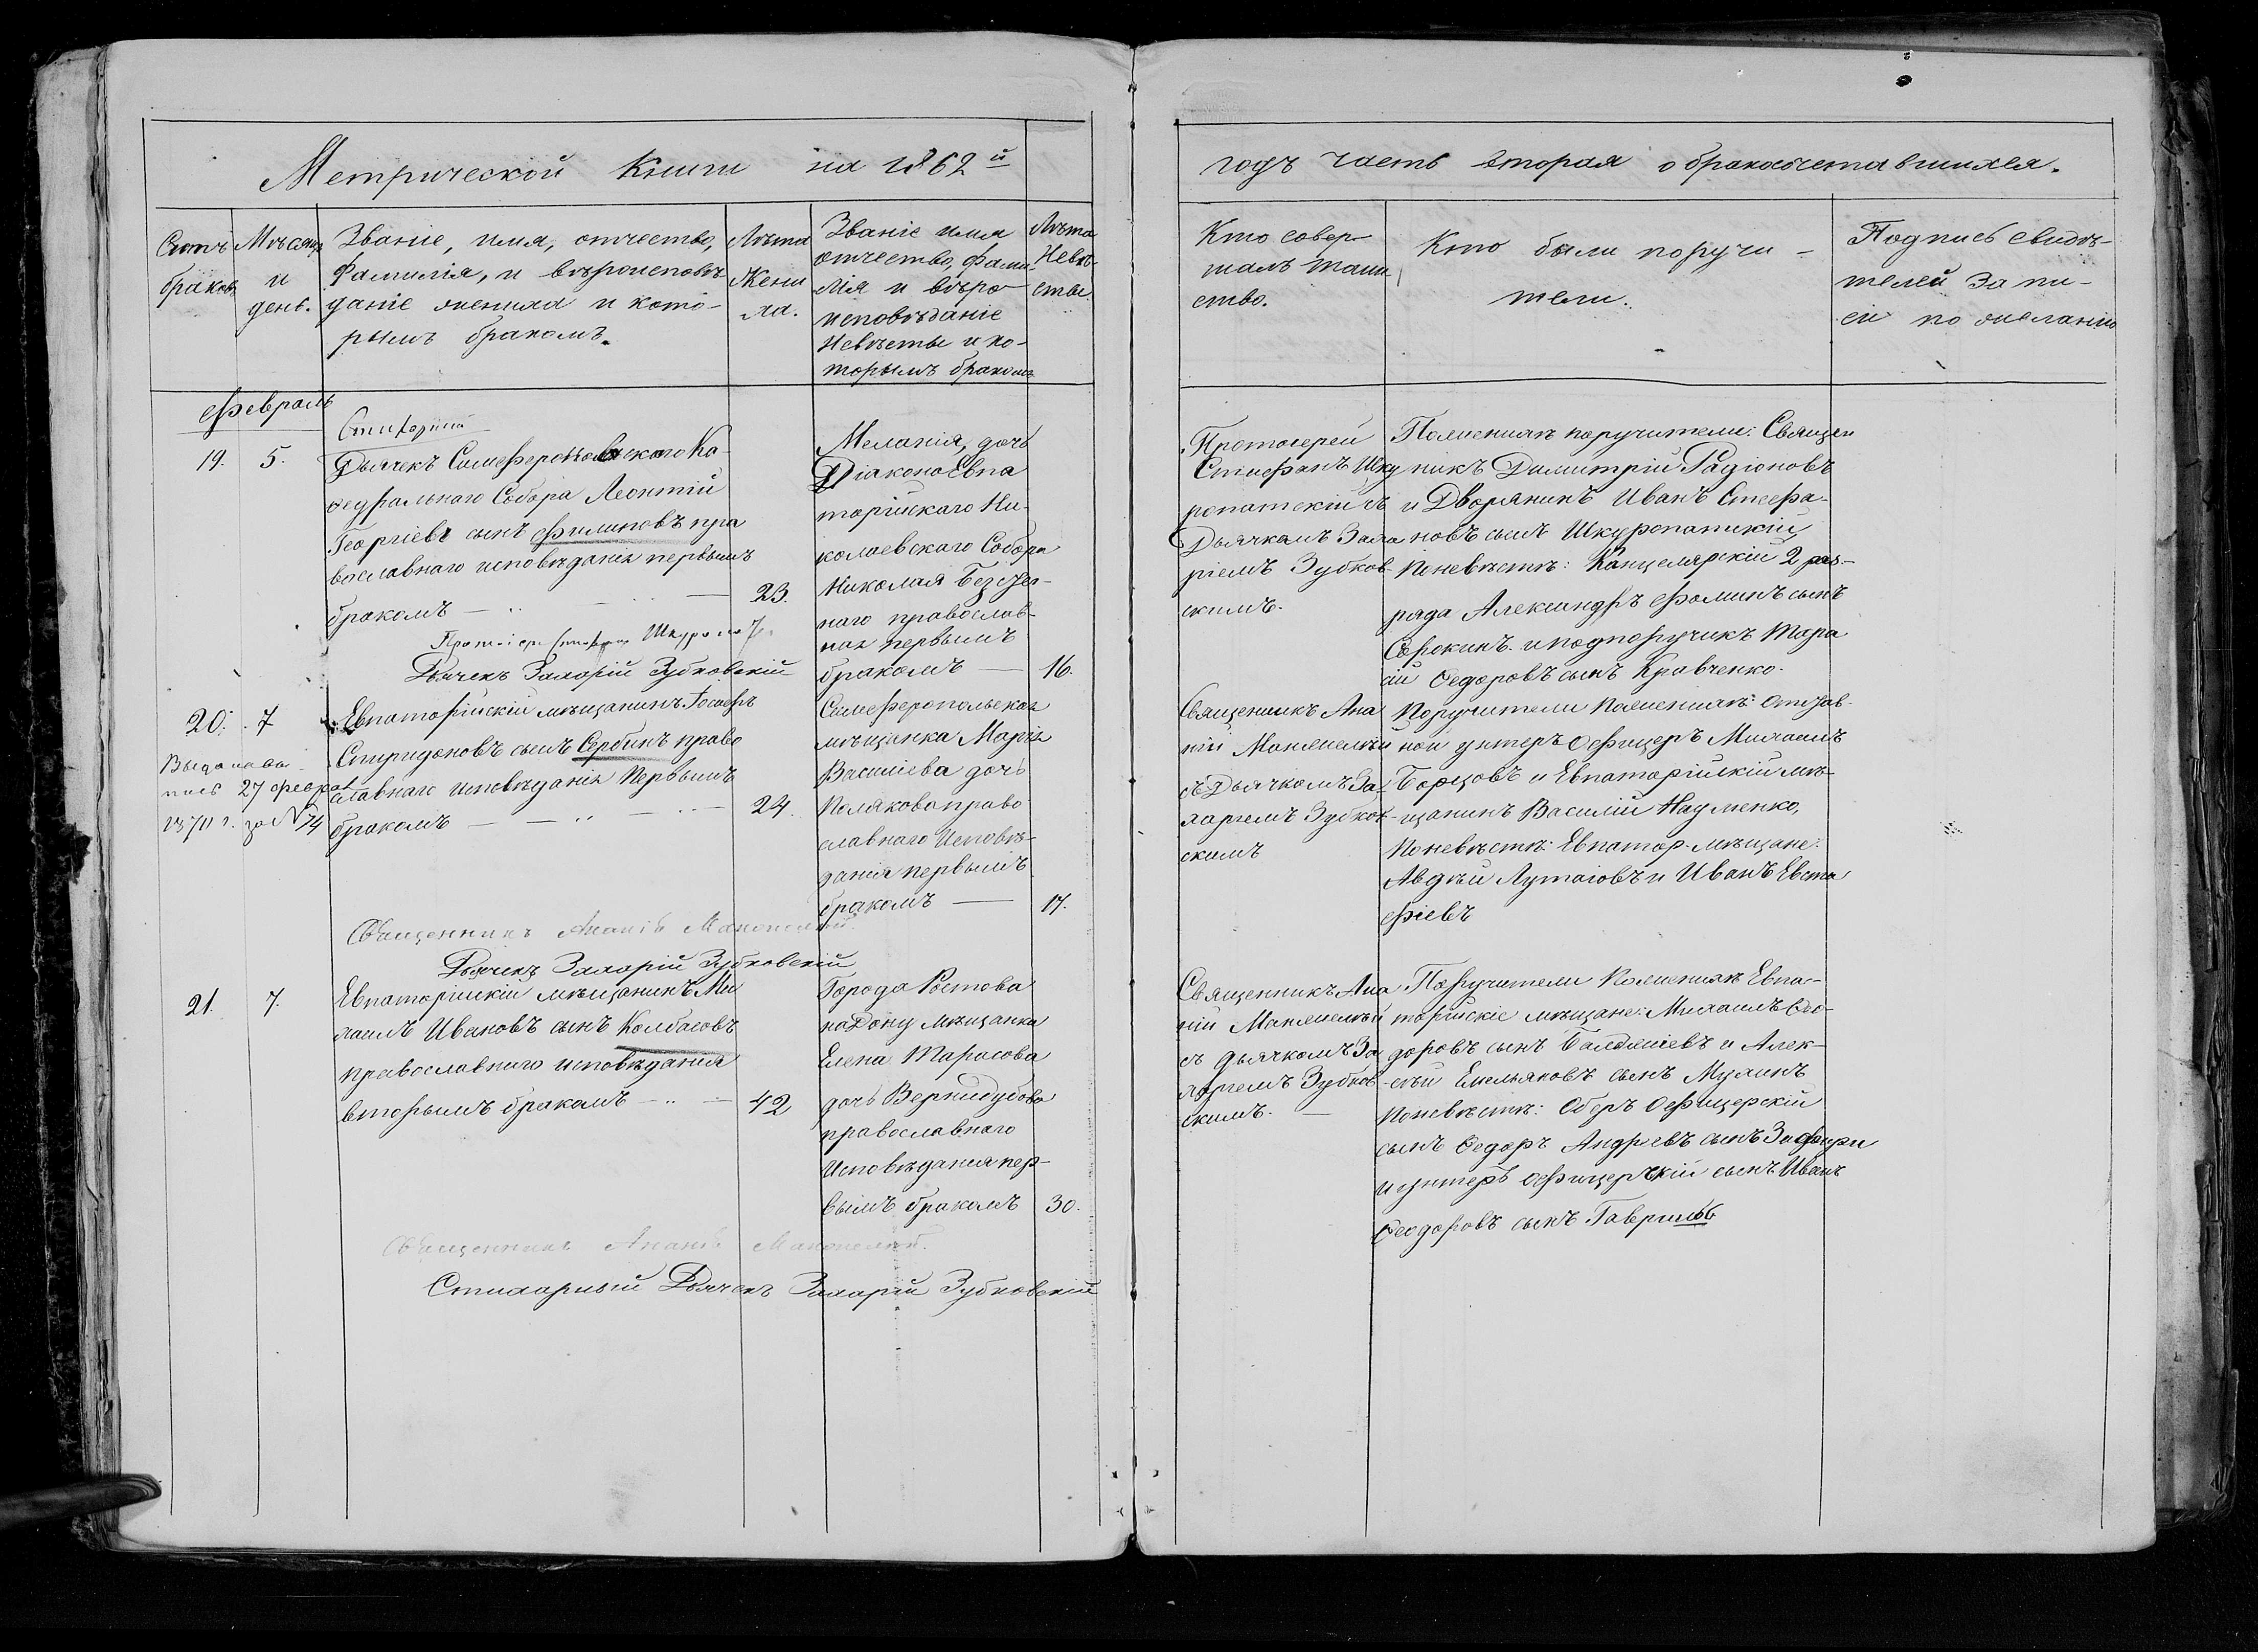 Метрической Книги на 1862й
годъ часть вторая о бракосочетавшихся.
Счетъ браковъ
Мѣсяцъ и день.
Званіе, имя, отчество,
фамилія, и вѣроисповѣ-
даніе жениха и кото-
рымъ бракомъ.
Лѣта
Жени
ха.
Званіе имя
отчество, фами-
лія и вѣро-
исповѣданіе
Невѣсты и ко-
торымъ бракомъ
Лѣта
Невѣ-
сты.
Кто совер-
шалъ таин
ство.
Кто были поручи-
тели.
Подпись свидѣ-
телей запи-
си по желанію
Февраль
19. 5.
Стихарный
Дьячекъ Симферопольскаго Ка-
ѳедральнаго Собора Леонтій
Георгіевъ сынъ Филиповъ пра
вославнаго исповѣданія первымъ
бракомъ 23.
Меланія, дочь
Діакона Евпа
торійскаго Ни-
колаевскаго Собора
Николая
наго православ-
ная первымъ
бракомъ 16.
Протоіерей
Стефанъ Шку
ропатскій съ
Дьячкомъ Заха
ріемъ Зубков-
скимъ.
По женихѣ поручители: Священ
никъ Димитрій Радіоновъ
и Дворянинъ Иванъ Стефа-
новъ сынъ Шкуропатскій
По невѣстѣ: Канцелярскій 2 раз-
ряда Александръ Фоминъ сынъ
Сорокинъ и подпоручикъ
Ѳедоровъ сынъ Кравченко.
Дьячекъ Захарій Зубковскій
20. 7
Выдана вы
пись 27 февр
1871 г. за № 74
Евпаторійскій мѣщанинъ Іосифъ
Спиридоновъ сынъ Сербинъ право
славнаго исповѣданія первымъ
бракомъ 24.
Симферопольская
мѣщанка Марія
Василіева дочь
Полякова право
славнаго Исповѣ-
данія первымъ
бракомъ 17.
Священникъ Ана
ній
съ Дьячкомъ За-
харіемъ Зубков-
скимъ
Поручители по женихѣ: отстав-
ной унтеръ офицеръ Михаилъ
Борцовъ и Евпаторійскій мѣ-
щанинъ Василій Науменко,
По невѣстѣ: Евпатор. мѣщане:
Авдѣй Лутаговъ и Иванъ Евста
фіевъ
Священникъ Ананій
Дьячекъ Захарій Зубковскій
21. 7.
Евпаторійскій мѣщанинъ Ми
хаилъ Ивановъ сынъ Колбасовъ
православнаго исповѣданія
вторымъ бракомъ 42
Города Ростова
на Дону мѣщанка
Елена Тарасова
дочь Вернидубова
православнаго
Исповѣданія пер-
вымъ бракомъ 30.
Священникъ Ана
ній
съ дьячкомъ За
харіемъ Зубков-
скимъ.
Поручители по женихѣ Евпа-
торійскіе мѣщане: Михаилъ Ѳео-
доровъ сынъ и Алек-
сѣй Емельяновъ сынъ
По невѣстѣ: Оберъ Офицерскій
сынъ Ѳедоръ Андреевъ сынъ
и унтеръ офицерскій сынъ Иванъ
Ѳеодоровъ сынъ
Священникъ Ананій
Стихарный Дьячекъ Захарій Зубковскій